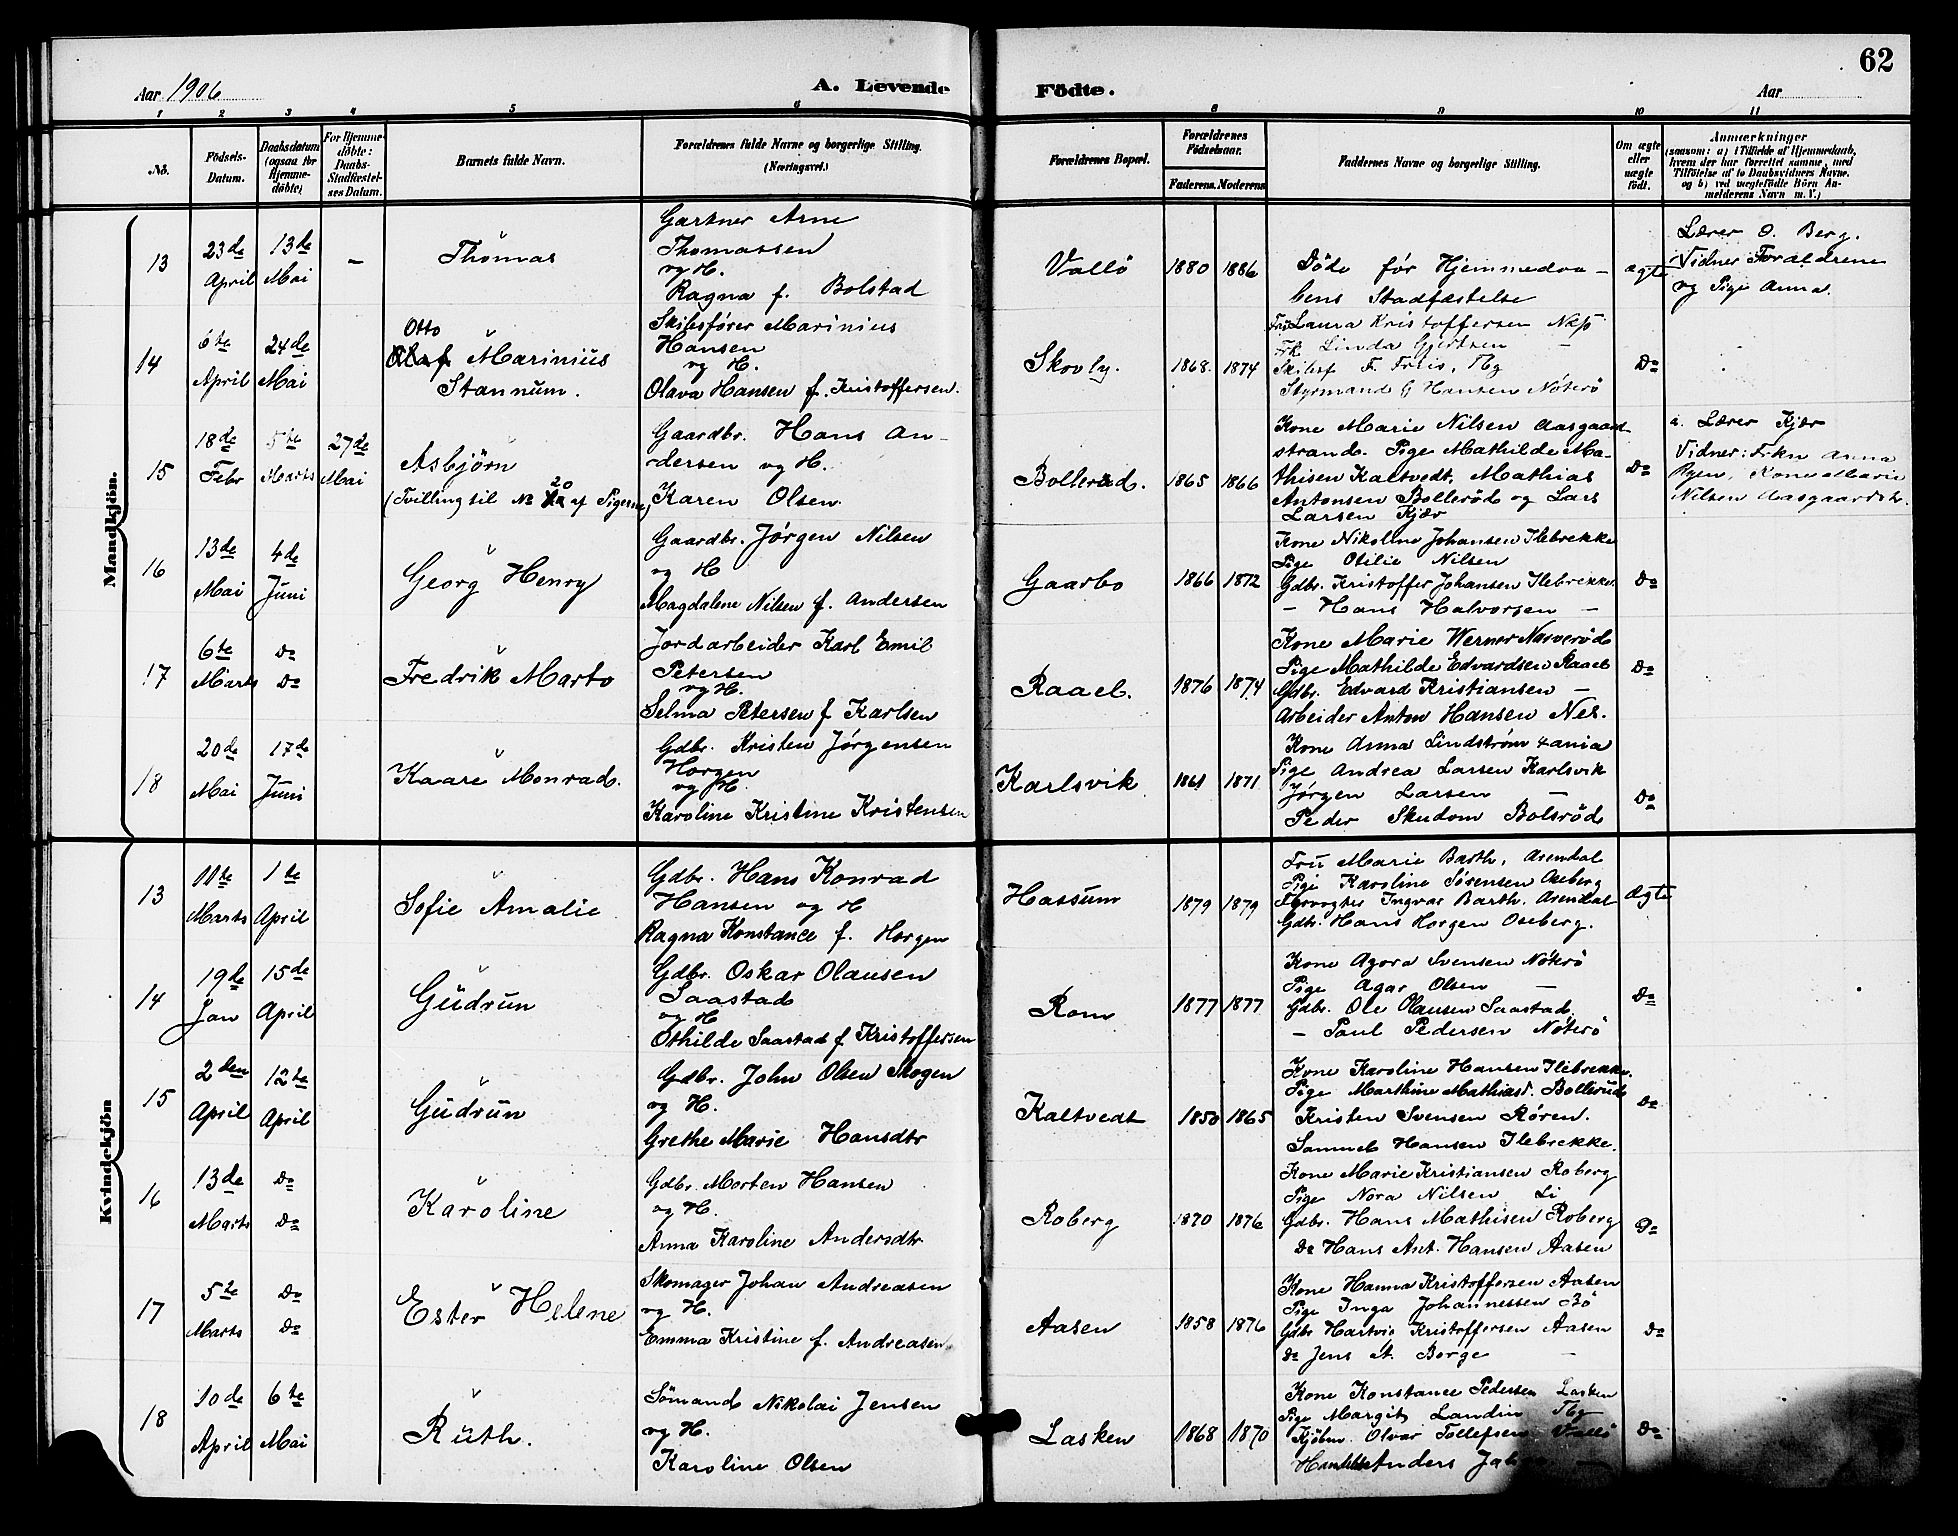 62
Aar 1906
A. Levende Födte.
Aar
1 2 3 4 5 6 8 9 10 11
No.
Födsels-Datum.
Daabsdatum (ogsaa for Hjemme-döbte)
For Hjemme-döbte: Daabs-Stadfæstel-ses Datum.
Barnets fulde Navn.
Forældrenes fulde Navne og borgerlige Stilling.
(Næringsvei.)
Forældrenes Bopæl.
Forældrenes Födselsaar.
Faderens. Moderens
Faddernes Navne og borgerlige Stilling.
Om ægte eller uægte födt.
Anmærkninger
(saasom: a) i Tilfælde af Hjemmedaab,
hvem der har forrettet samme, med
Tilföielse af to Daabsvidners Navne.
og b) ved uægtefödte Börn An-
melderens Navn m. V.)
Mandkjön.
13
23de April
13de Mai
–
Thomas
Gartner Arne
Thomassen
og H.
Ragna f. Bolstad
Vallö
1880 1886
Döde før Hjemmedaa-
bens Stadfæstelse
ægte
Lærer O. Berg.
Vidner Forældrene
og Pige Anna.
14
6te April
24de Mai
Otto
Olaf Marinius
Stannum.
Skibsfører Marinius
Hansen
og H.
Olava Hansen f. Kristoffersen.
Skovly.
1868. 1874
Fru Laura Kristoffersen
Frk Linda Gjertsen –
Skibsf F. Friis, Tbg
Styrmand G Hansen Nöterö
Do
15
18de Febr
5te Marts
27de Mai
Asbjörn
(Tvilling til No 20 af Pigerne)
Gaardbr. Hans An-
dersen og H.
Karen Olsen
Bolleröd.
1865 1866
Kone Marie Nilsen Aasgaard-
strand. Pige Mathilde Ma-
thisen Kaltvedt, Mathias
Antonsen Bolleröd og Lars
Larsen Kjær
Do
Lærer Kjær
Vidner: Frkn Anna
Ryen, Kone Marie
Nilsen Aasgaardstr.
16
13de Mai
4de Juni
Georg Henry
Gaardbr. Jørgen Nilsen
og H
Magdalene Nilsen f. Andersen
Gaarbo
1866 1872
Kone Nikoline Johansen Ilebrekke
Pige Otilie Nilsen
Gdbr. Kristoffer Johansen Ilebrekke.
– Hans Halvorsen –
Do
17
6te Marts
Do Do
Fredrik Marto
Jordarbeider Karl Emil
Petersen
og H.
Selma Petersen f Karlsen
Raael.
1876 1874
Kone Marie Werner Nasveröd
Pige Mathilde Edvardsen Raael
Gdbr. Edvard Kristiansen –
Arbeider Anton Hansen Nes.
Do
18
20de Mai
17de Juni
Kaare Monrad.
Gdbr. Kristen Jørgensen
Horgen
og H.
Karoline Kristine Kristensen
Karlsvik
1861 1871
Kone Anna Lindstrøm
Pige Andrea Larsen Karlsvik
Jørgen Larsen –
Peder Skudom Bolsröd
Do
Kvindekjön
13
11te Marts
1te April
Sofie Amalie
Gdbr. Hans Konrad
Hansen og H
Ragna Konstance f. Horgen
Hassum
1879 1879
Fru Marie Barth, Arendal
Pige Karoline Sørensen Oseberg
Ingvar Barth. Arendal
Gdbr. Hans Horgen Oseberg.
Ægte
14
19de Jan
15de April
Gudrun
Gdbr. Oskar Olausen
Saastad
og H
Othilde Saastad f Kristoffersen
Rom
1877 1877
Kone Agora Svensen Nöterö
Pige Agar Olsen –
Gdbr. Ole Olausen Saastad
– Paul Pedersen Nöterö
Do
15
2den April
12te April
Gudrun
Gdbr. John Olsen Skogen
og H.
Grethe Marie Hansdtr
Kaltvedt
1850 1865
Kone Karoline Hansen Ilebrekke.
Pige Marthine Mathiasd. Bolleröd
Kristen Svensen Røren.
Samuel Hansen Ilebrekke.
Do
16
13de Marts
Do Do
Karoline
Gdbr. Morten Hansen
og H.
Anna Karoline Andersdtr
Roberg
1870 1876
Kone Marie Kristiansen Roberg
Pige Nora Nilsen Li
Gdbr. Hans Mathisen Roberg
Do Hans Ant. Hansen Aasen
Do
17
5te Marts
Do Do
Ester Helene
Skomager Johan Andreasen
og H.
Emma Kristine f. Andreasen
Aasen
1858 1876
Kone Hanna Kristoffersen Aasen
Pige Inga Johannessen Bö
Gdbr Hartvig Kristoffersen Aasen
Do Jens A. Borge –
Do
18
10de April
6te Mai
Ruth.
Sömand Nikolai Jensen
og H.
Karoline Olsen
Lasken
1868 1870
Kone Konstance Pedersen Lasken
Pige Margit Landin Tbg
Kjöbm. Olvar Tollefsen Vallö
Anders
Do